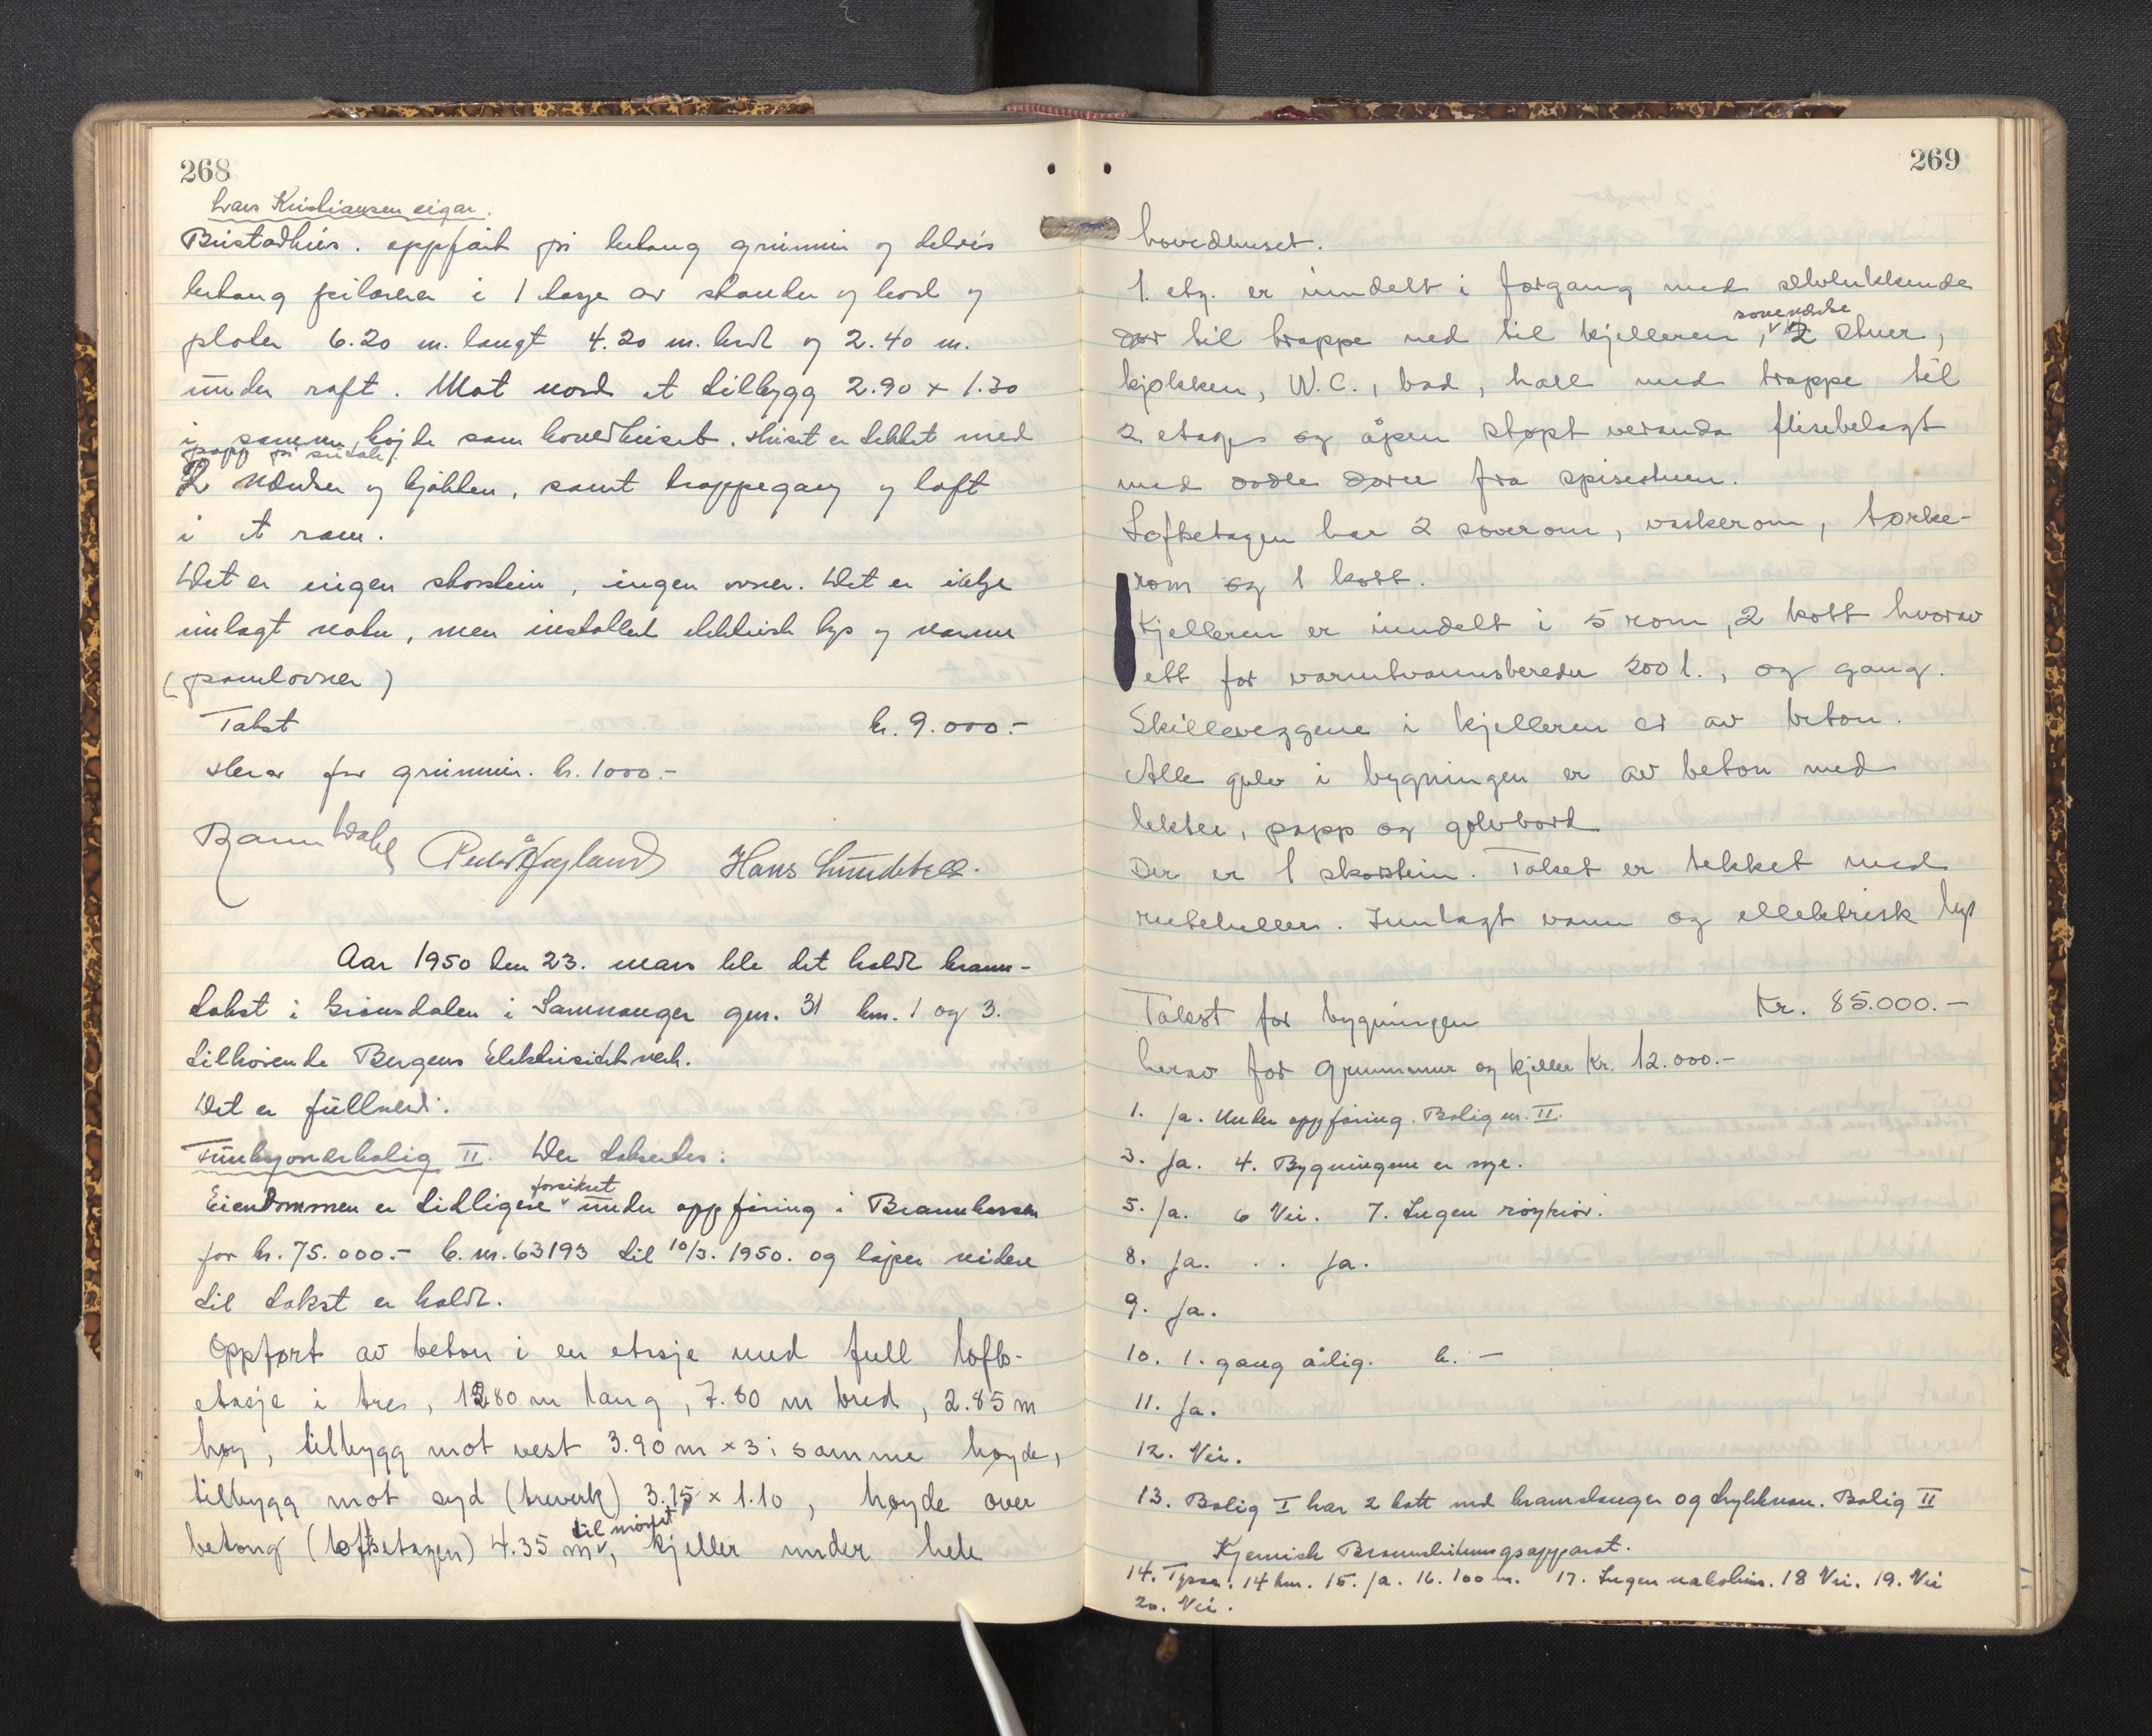 268
Lars Kristiansen eigar.
Bustadhus. oppført på betong grunnmur og delvis
betong pilarer i 1 etasje av stender og bord og
plater 6.20 m. langt 4.20 m. bred og 2.40 m.
under raft. Mot nord et tilbygg 2.90 x 1.30
i samme højde som hovedhuset. Huset er tekket med
papp på sutak.
2 værelser og kjökken, samt trappegang og loft
i et rom.
Det er ingen skorstein, ingen ovner. Det er ikkje
innlagt vatn, men installert elektrisk lys og varme
(panelovner)
Takst kr. 9.000.-
Herav for grunnmur. kr. 1000.-
Dahl Peder Å. Hans
Aar 1950 den 23. mars ble det holdt brann-
takst i Grönsdalen i Samnanger gnr. 31 bnr. 1 og 3.
tilhörende Bergens Elektrisitetsverk.
Det er fullverdi.
Funksjonærbolig II. Der takseres:
Eiendommen er tidligere forsikret under oppföring i Brannkassen
for kr. 75.000.- b. nr. 63193 til 10/3. 1950. og löper videre
til takst er holdt.
Oppført av beton i en etasje med full lofts-
etasje i tre, 12.80 m lang, 7.80 m bred, 2.85 m
høy, tilbygg mot vest 3.90 m x 3 i samme høyde,
tilbygg mot syd (treverk) 3.75 x 1.10, høyde over
betong (loftsetagen) 4.35 m til mönet, kjeller under hele
269
hovedhuset.
1. etg. er inndelt i forgang med selvlukkende
dør til trappe ned til kjelleren, soveværelse 2 stuer,
kjøkken, W.C., bad, hall med trappe til
2. etage og åpen støpt veranda flisebelagt
med doble dører fra spisestuen.
Loftsetagen har 2 soverom, vaskerom, tørke-
rom og 1 kott.
Kjelleren er inndelt i 5 rom, 2 kott hvorav
ett for varmtvannsbereder 200 l., og gang.
Skilleveggene i kjelleren er av beton.
Alle gulv i bygningen er av beton med
lekter, papp og golvbord
Der er 1 skorstein. Taket er tekket med
ruteheller. Innlagt vann og ellektrisk lys
Takst for bygningen Kr. 85.000.-
herav for grunnmur og kjeller Kr. 12.000.-
1. Ja. Under oppföring. Bolig nr. II.
3. Ja. 4. Bygningene er nye.
5. Ja. 6 Nei. 7. Ingen röykrör.
8. Ja. . . Ja.
9. Ja.
10. 1. gang årlig. b. -
11. Ja.
12. Nei.
13. Bolig I har 2 kott med brannslanger og trykkvann. Bolig II
Kjemisk Brannslukningsapparat.
14. Tysse. 14 km. 15. Ja. 16. 100 m. 17. Ingen nabohus. 18 Nei. 19. Nei
20. Nei.